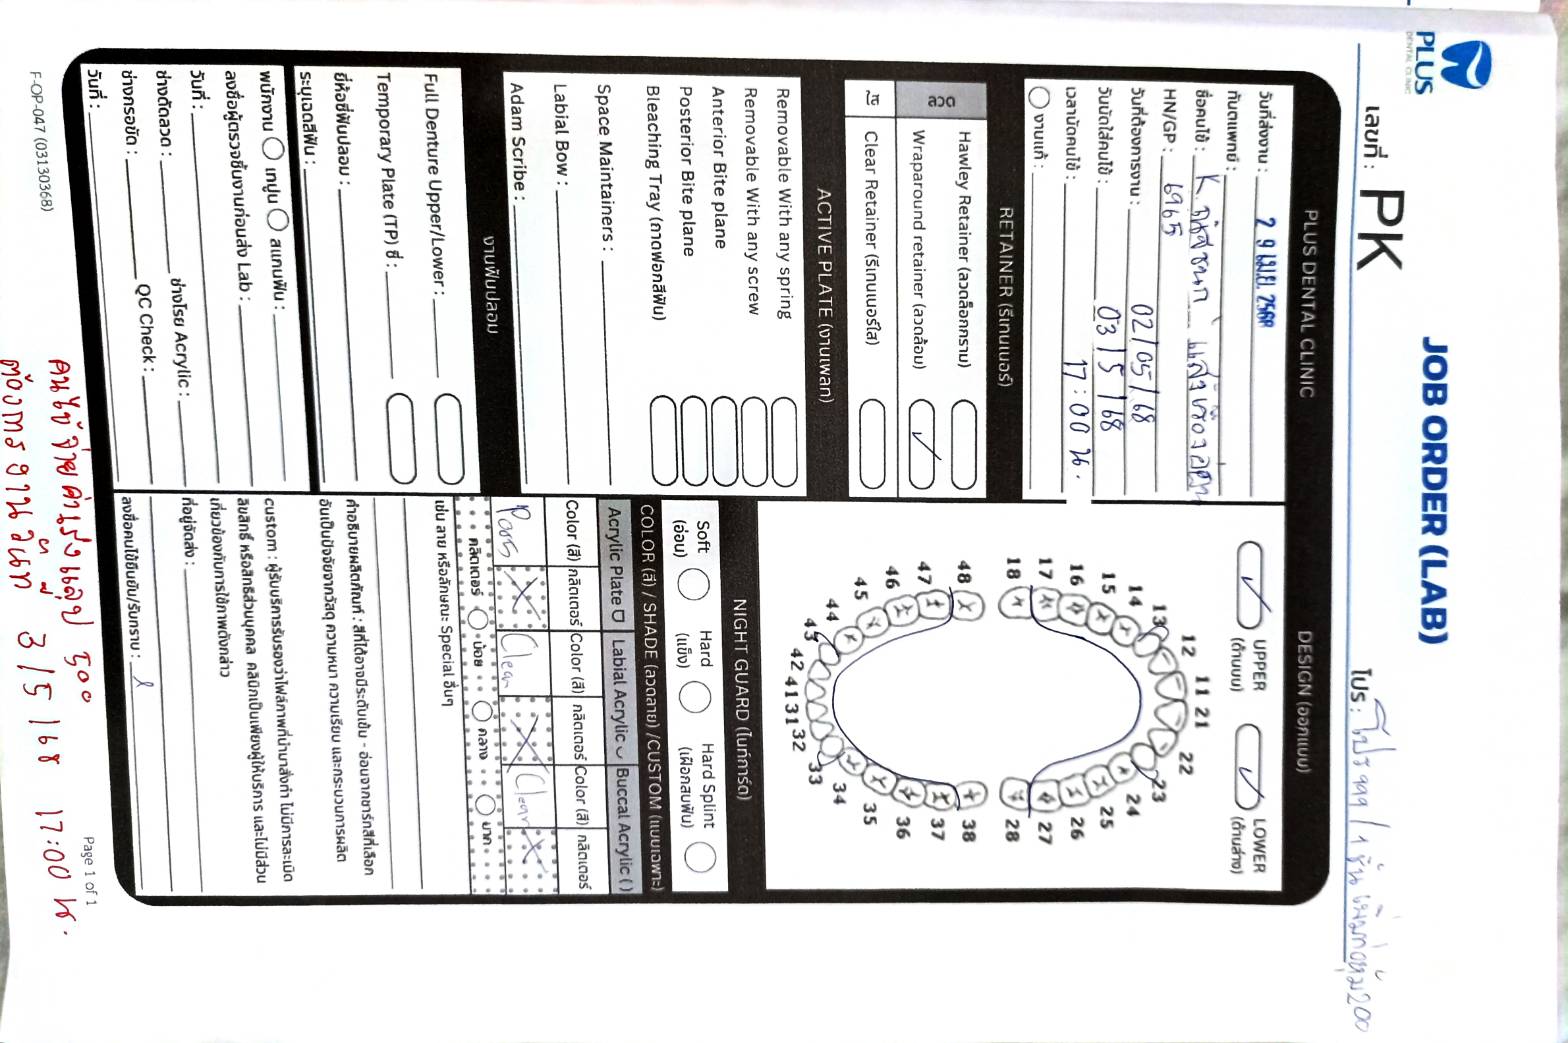 PLUS
DENTAL CLINIC
JOB ORDER (LAB)
เลขที่ : PK
โปร : โปร 999 / 1 ชิ้น
PLUS DENTAL CLINIC
วันที่ส่งงาน : 2 9 เม.ย. 2568
ทันตแพทย์ :
ชื่อคนไข้ : K.
HN/GP : 6965
วันที่ต้องการงาน : 02/05/68
วันนัดใส่คนไข้ : 03/5/68
เวลานัดคนไข้ : 17:00 น.
งานแก้ :
RETAINER (รีเทนเนอร์)
ลวด
Hawley Retainer (ลวดล็อกกราม)
Wraparound retainer (ลวดล้อม) ✓
ใส
Clear Retainer (รีเทนเนอร์ใส)
ACTIVE PLATE (งานเพลท)
Removable With any spring
Removable With any screw
Anterior Bite plane
Posterior Bite plane
Bleaching Tray (ถาดฟอกสีฟัน)
Space Maintainers :
Labial Bow :
Adam Scribe :
งานฟันปลอม
Full Denture Upper/Lower :
Temporary Plate (TP) ซี่ :
ยี่ห้อซี่ฟันปลอม :
ระบุเฉดสีฟัน :
พนักงาน เทปูน สแกนฟัน :
ลงชื่อผู้ตรวจชิ้นงานก่อนส่ง Lab :
วันที่ :
ช่างดัดลวด : ช่างโรย Acrylic :
ช่างกรอขัด : QC Check :
วันที่ :
DESIGN (ออกแบบ)
✓ UPPER (ด้านบน) ✓ LOWER (ด้านล่าง)
18 17 16 15 14 13 12 11 21 22 23 24 25 26 27 28
48 47 46 45 44 43 42 41 31 32 33 34 35 36 37 38
NIGHT GUARD (ไนท์การ์ด)
Soft (อ่อน) Hard (แข็ง) Hard Splint (เฝือกสบฟัน)
COLOR (สี) / SHADE (ลวดลาย) /CUSTOM (แบบเฉพาะ)
Acrylic Plate Labial Acrylic Buccal Acrylic ( )
Color (สี) กลิตเตอร์ Color (สี) กลิตเตอร์ Color (สี) กลิตเตอร์
Clear Clear
กลิตเตอร์ น้อย กลาง มาก
เช่น ลาย หรือลักษณะ Special อื่นๆ
คำอธิบายผลิตภัณฑ์ : สีที่ได้อาจมีระดับเข้ม - อ่อนจากชาร์ทสีที่เลือก
อันเป็นปัจจัยจากวัสดุ ความหนา ความเรียบ และกระบวนการผลิต
custom : ผู้รับบริการรับรองว่าไฟล์ภาพที่นำมาสั่งทำ ไม่มีการละเมิด
ลิขสิทธิ์ หรือสิทธิส่วนบุคคล คลินิกเป็นเพียงผู้ให้บริการ และไม่มีส่วน
เกี่ยวข้องกับการใช้ภาพดังกล่าว
ที่อยู่จัดส่ง :
ลงชื่อคนไข้ยืนยัน/รับทราบ :
F-OP-047 (03130368)
Page 1 of 1
คนไข้จ่ายค่าเร่งแล้ว 500
ต้องการงานวันที่ 3/5/68 17:00 น.